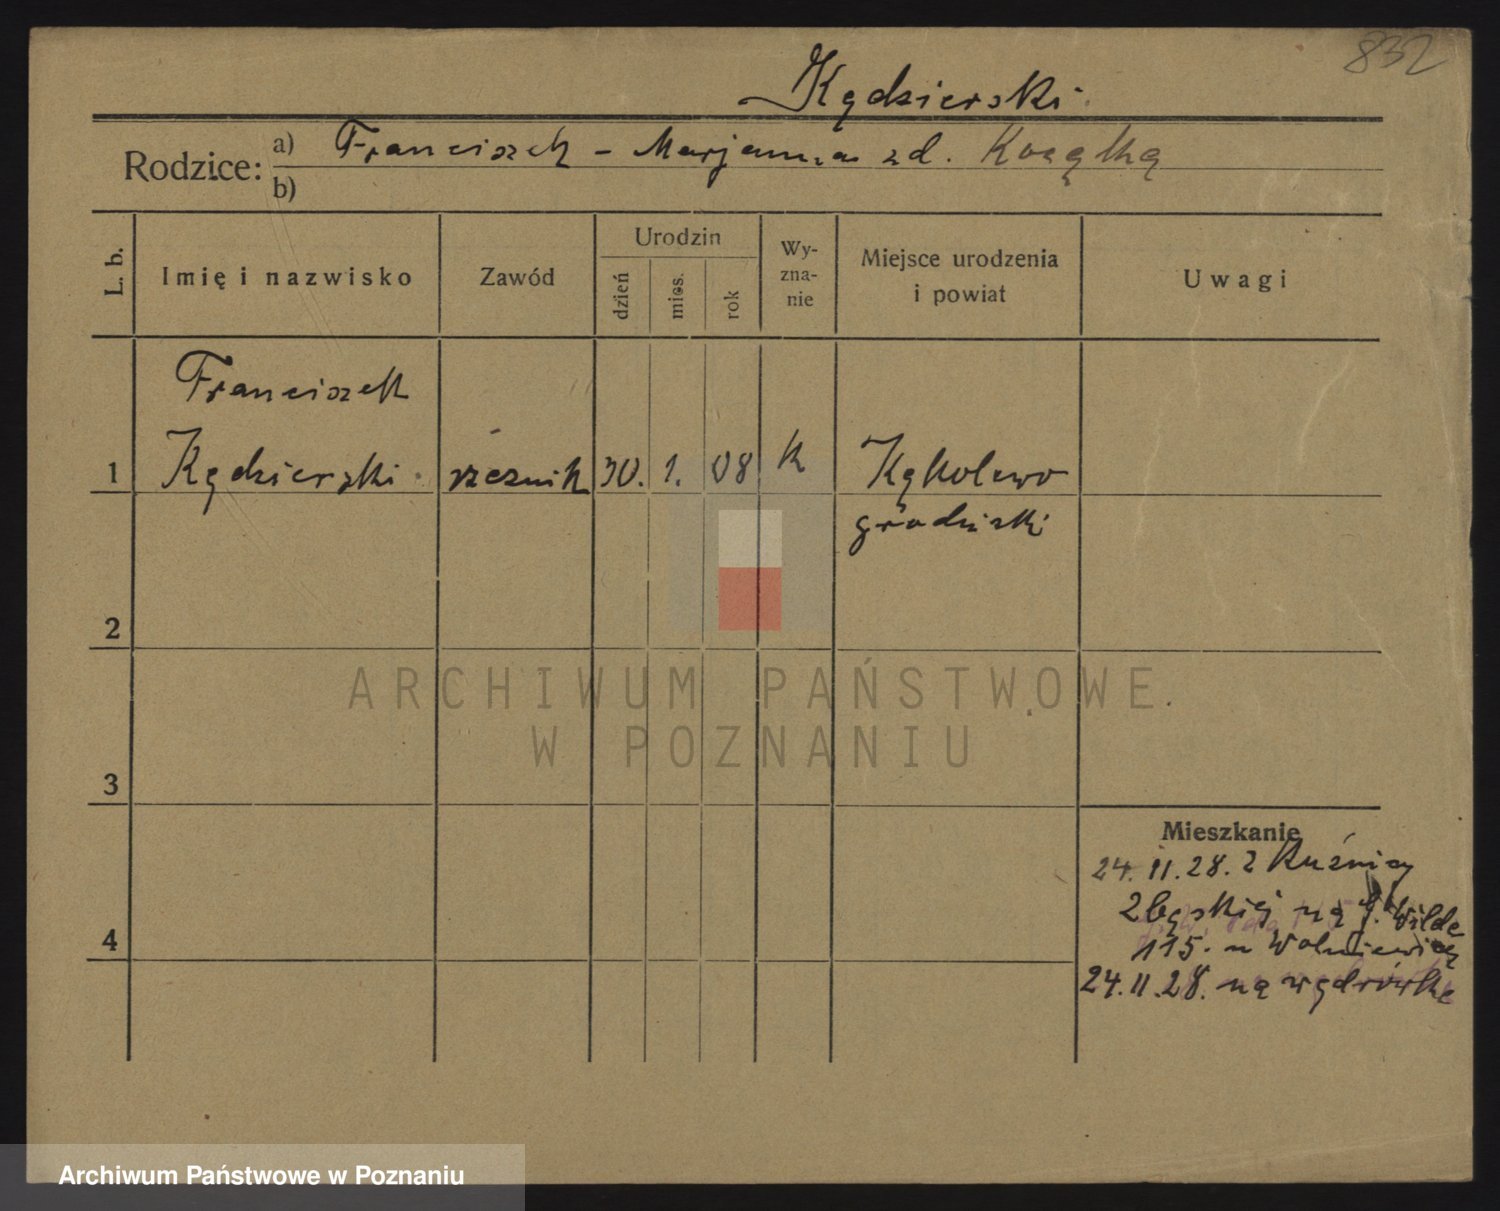 832
Kędzierski.
Rodzice: a) Franciszek - Marjanna zd.
b)
L. b. Imię i nazwisko Zawód Urodzin dzień mies. rok Wy-zna-nie Miejsce urodzenia i powiat Uwagi
Franciszek
1 Kędzierski rzeźnik 30. 1. 08 k Kąkolewo
grodziski
2
ARCHIWUM PAŃSTWOWE
W POZNANIU
3
Mieszkanie
24. 11. 28. z Kuźnicy
Zbąskiej na G. Wilde
4
115. u
24. 11. 28. na wędrówkę
Archiwum Państwowe w Poznaniu